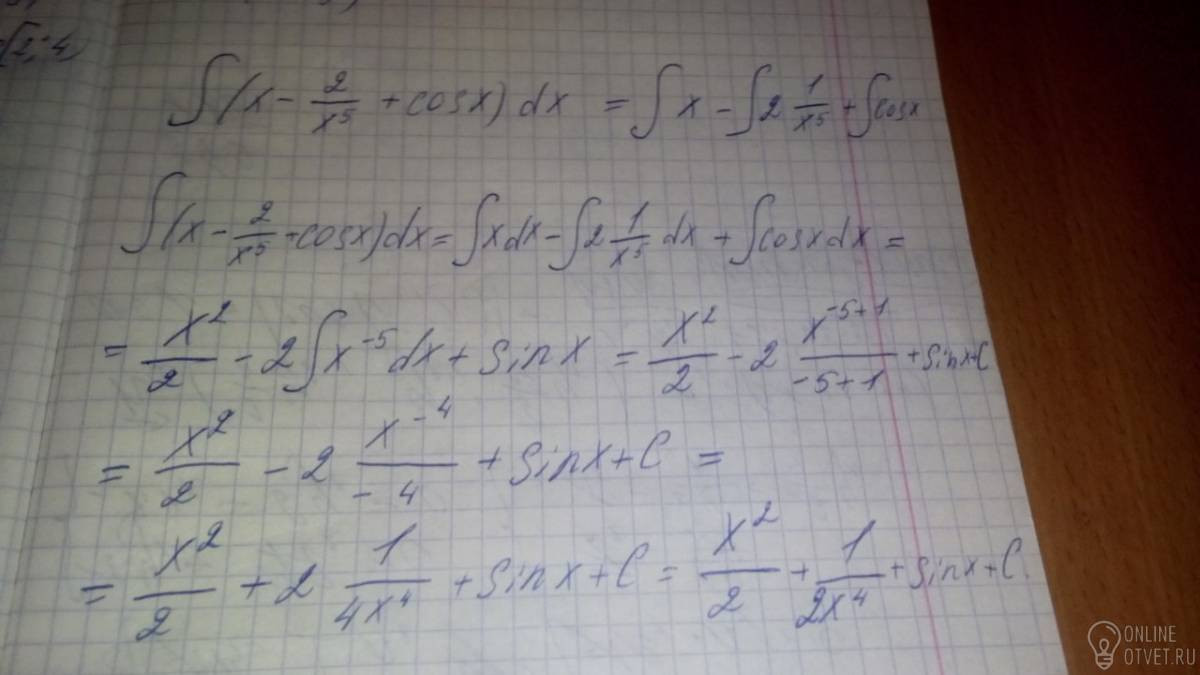 ∫(x - 2/x⁵ + cosx) dx = ∫x - ∫2 1/x⁵ + ∫cosx
∫(x - 2/x⁵ + cosx) dx = ∫xdx - ∫2 1/x⁵ dx + ∫cosxdx =
= x²/2 - 2∫x⁻⁵dx + sinx = x²/2 - 2 x⁻⁵⁺¹/(-5+1) + sinx+C
= x²/2 - 2 x⁻⁴/-4 + sinx+C =
= x²/2 + 2 1/4x⁴ + sinx+C = x²/2 + 1/2x⁴ + sinx+C.
ONLINE
OTVET.RU